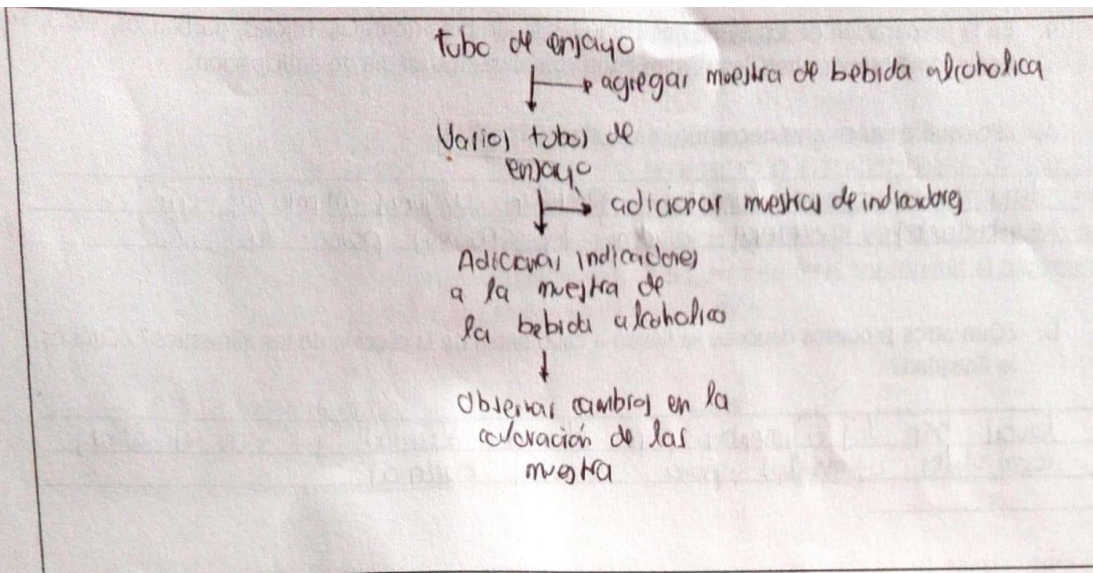 tubo de ensayo
agregar muestra de bebida alcoholica
Varios tubos de
ensayo
adicionar muestras de indicadores
Adicionar indicadores
a la muestra de
la bebida alcoholica
Observar cambios en la
coloración de las
mestra